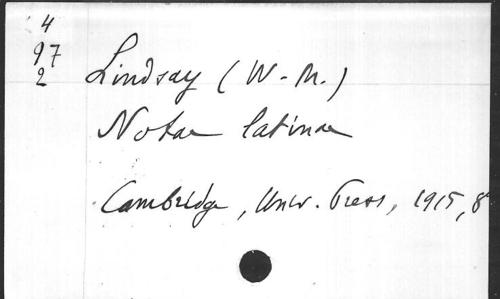 4
97
2
Lindsay (W. M.)
Notae latinae
Cambridge, Univ. Press, 1915, 8